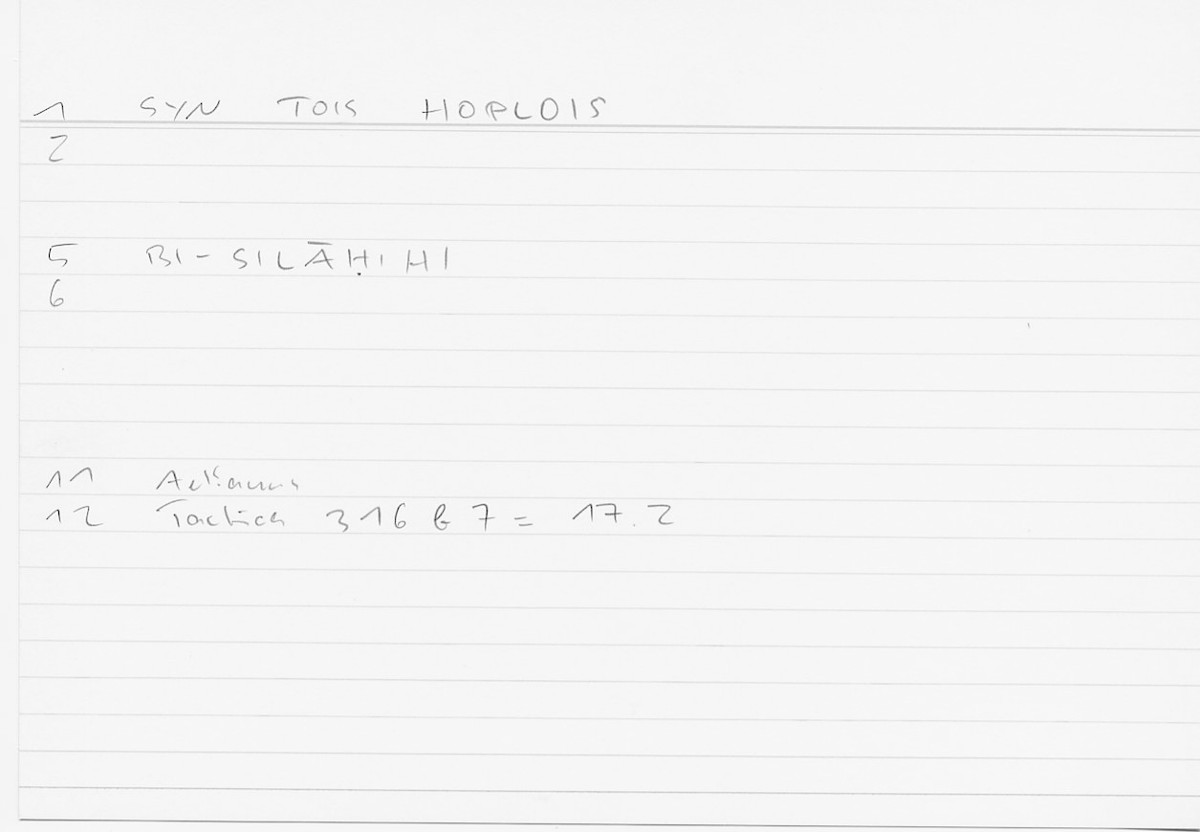 1 SYN TOIS HOPLOIS
2
5 BI-SILĀḤIHI
6
11 Aelianus
12 Tactica 316 b 7 = 17.2